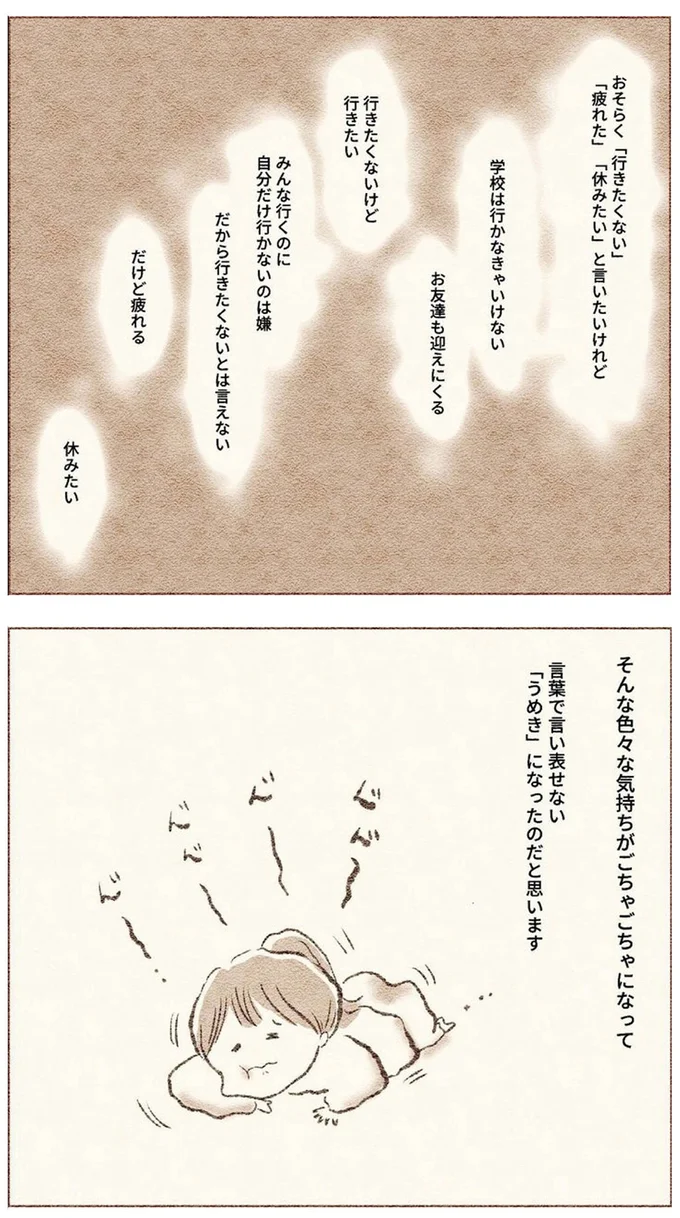 おそらく「行きたくない」
「疲れた」「休みたい」と言いたいけれど
学校は行かなきゃいけない
お友達も迎えにくる
行きたくないけど
行きたい
みんな行くのに
自分だけ行かないのは嫌
だから行きたくないとは言えない
だけど疲れる
休みたい
そんな色々な気持ちがごちゃごちゃになって
言葉で言い表せない
「うめき」になったのだと思います
ん゛ん゛〜
ん゛〜
ん゛ん゛〜
ん゛〜